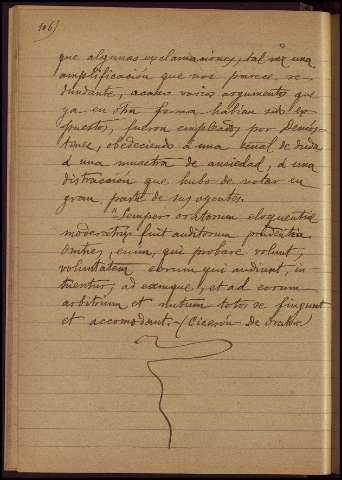 106)
que algunas esclamaciones, tal vez una
amplificación que nos parece re-
dundante, acaso varios argumentos que
ya en otra forma habían sido ex-
puestos, fueron empleados por Demós-
tenes, obedeciendo a una señal de duda
á una muestra de ansiedad, á una
distracción que hubo de notar en
gran parte de sus oyentes.
"Semper oratorum eloquentiæ
moderatrix fuit auditorum prudentia
Omnes, enim, qui probare volunt,
voluntatem eorum qui audiunt, in-
tuentur, ad eamque, et ad eorum
arbitrium et nutum totos se fingunt
et accomodant.-(Cicerón De Oratore)